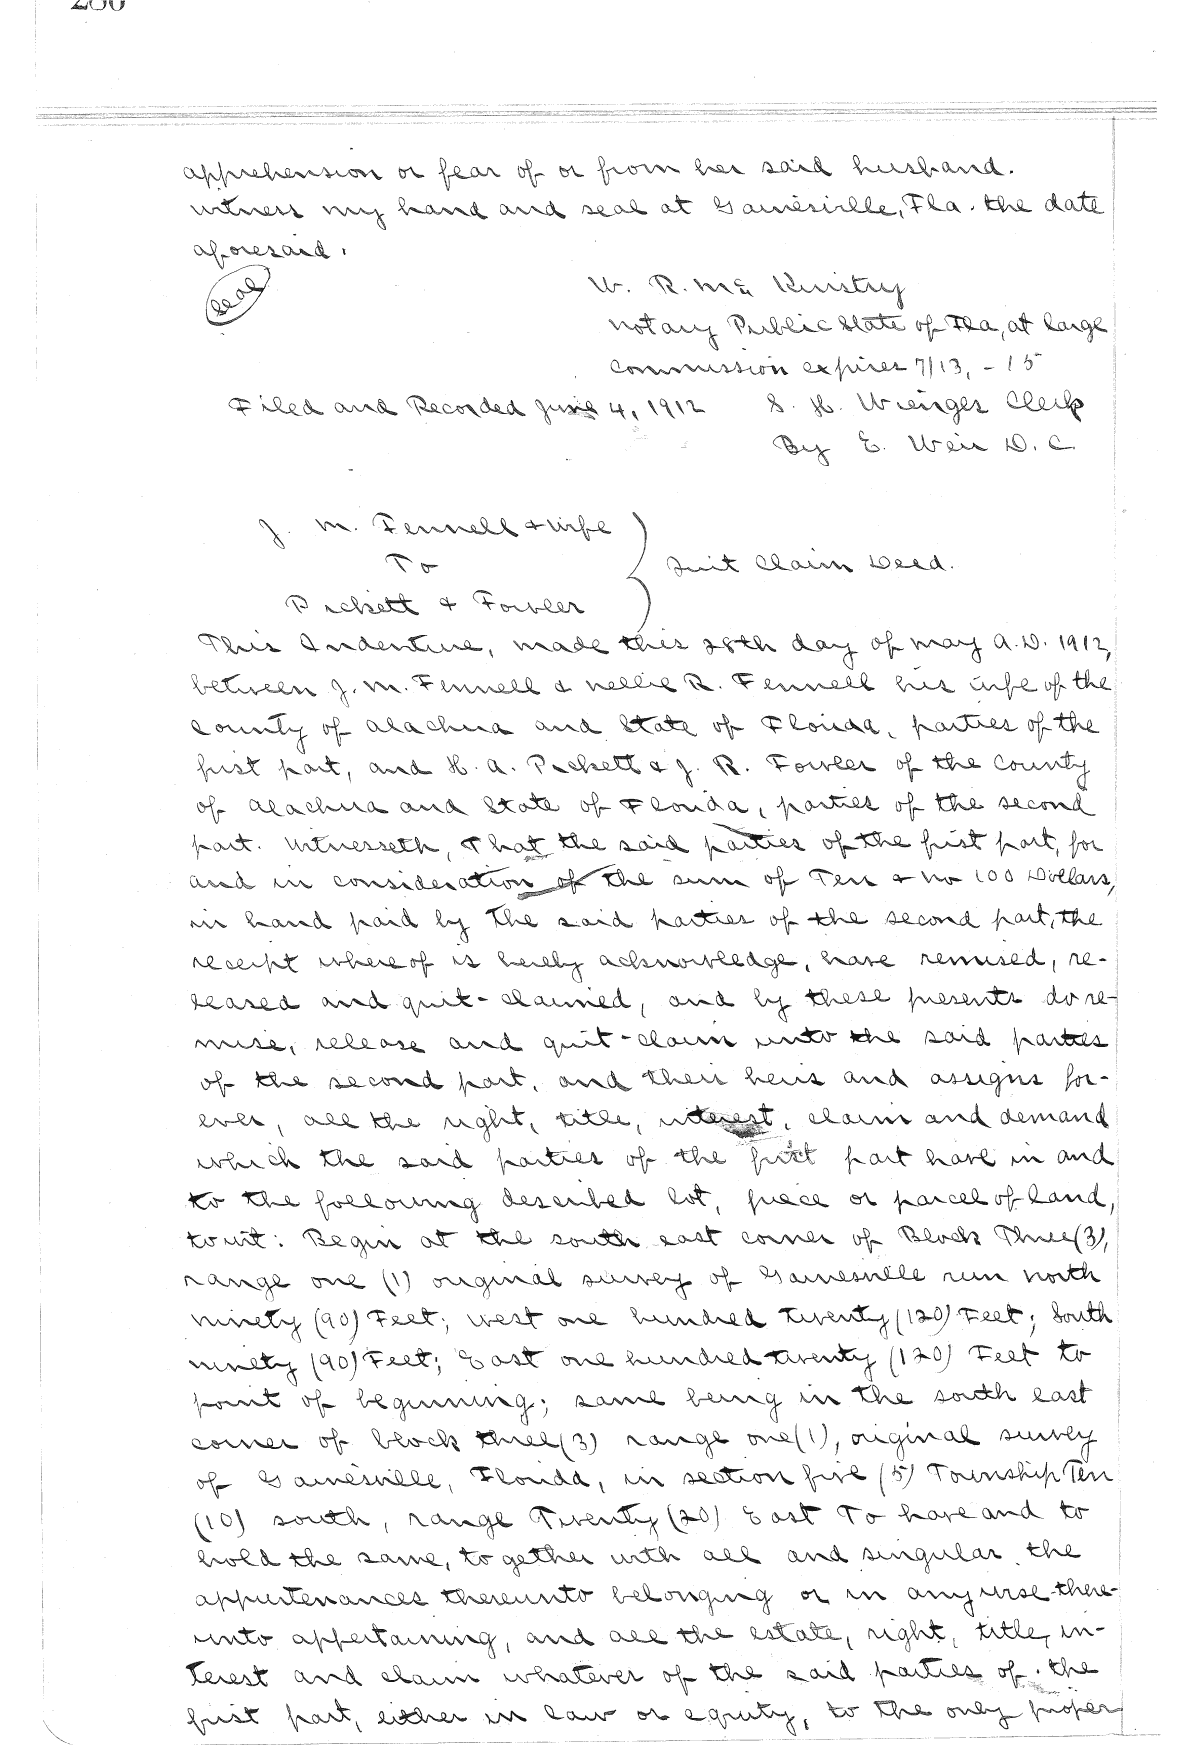 apprehension or fear of or from her said husband.
witness my hand and seal at Gainesville, Fla. the date
aforesaid.
Seal
W. R. Mc Kinstry
Notary Public State of Fla, at large
Commission expires 7/13, - 15
Filed and Recorded June 4, 1912 S. H. Wienges Clerk
By E. Weir D. C.
J. M. Fennell & wife
To
Pickett & Fowler
Quit Claim Deed.
This Indenture, made this 28th day of May A. D. 1912,
between J. M. Fennell & Nellie R. Fennell his wife of the
County of Alachua and State of Florida, parties of the
first part, and H. A. Pickett & J. R. Fowler of the County
of Alachua and State of Florida, parties of the second
part. Witnesseth, That the said parties of the first part, for
and in consideration of the sum of Ten & no 100 Dollars,
in hand paid by the said parties of the second part, the
receipt whereof is hereby acknowledge, have remised, re-
leased and quit-claimed, and by these presents do re-
mise, release and quit-claim unto the said parties
of the second part, and their heirs and assigns for-
ever, all the right, title, interest, claim and demand
which the said parties of the first part have in and
to the following described lot, piece or parcel of land,
to wit: Begin at the south east corner of Block Three (3),
range one (1) original survey of Gainesville run north
ninety (90) Feet; west one hundred twenty (120) Feet; South
ninety (90) Feet; East one hundred twenty (120) Feet to
point of beginning; same being in the south east
corner of block three (3) range one (1), original survey
of Gainesville, Florida, in section five (5) Township Ten
(10) south, range Twenty (20) East To have and to
hold the same, together with all and singular the
appurtenances thereunto belonging or in anywise there-
unto appertaining, and all the estate, right, title, in-
terest and claim whatever of the said parties of the
first part, either in law or equity, to the only proper